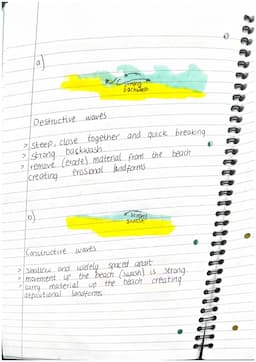 a)
strong
backwash
Destructive waves
> steep, close together and quick breaking
> strong backwash
> remove (erode) material from the beach
creating erosional landforms
b)
strong
swash
Constructive waves
> shallow and widely spaced apart
> movement up the beach (swash) is strong
> carry material up the beach creating
depositional landforms